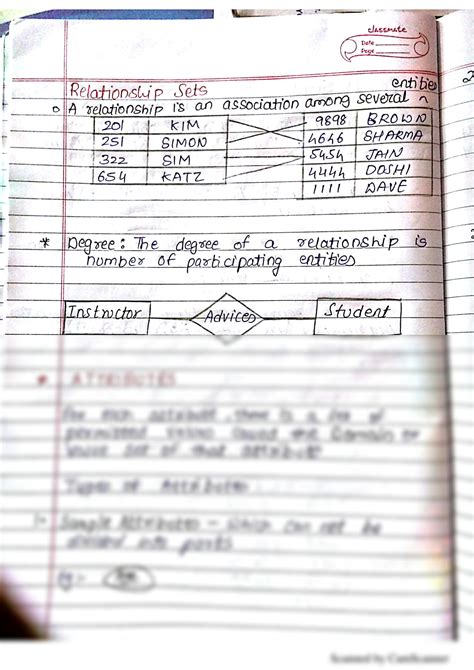 classmate
Date
Page
Relationship Sets
entities
o A relationship is an association among several ^
201 KIM 9898 BROWN
251 SIMON 4646 SHARMA
322 SIM 5454 JAIN
654 KATZ 4444 DOSHI
1111 DAVE
* Degree: The degree of a relationship is
number of participating entities
Instructor Advices Student
* ATTRIBUTES
For each attribute, there is a set of
permitted values called the Domain or
value set of that attribute
Types of Attributes
1- Simple Attributes - which can not be
divided into parts
eg -
Scanned by CamScanner